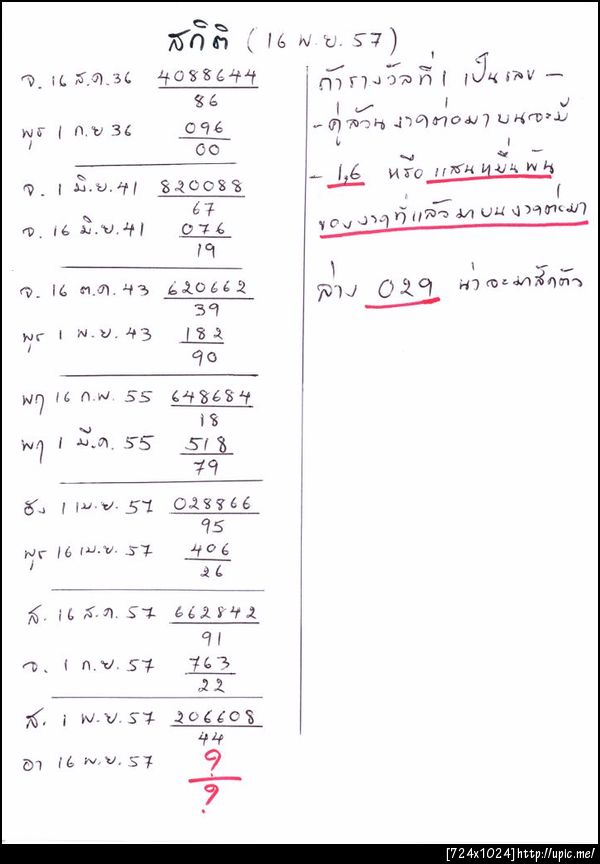 สถิติ (16 พ.ย. 57)
จ. 16 ส.ค. 36 4088644
86
พุธ 1 ก.ย 36 096
00
จ. 1 มิ.ย. 41 820088
67
จ. 16 มิ.ย. 41 076
19
จ. 16 ต.ค. 43 620662
39
พุธ 1 พ.ย. 43 182
90
พฤ 16 ก.พ. 55 648684
18
พฤ 1 มี.ค. 55 518
79
อัง 1 เม.ย. 57 028866
95
พุธ 16 เม.ย. 57 406
26
ส. 16 ส.ค. 57 662842
91
จ. 1 ก.ย. 57 763
22
ส. 1 พ.ย. 57 206608
44
อา 16 พ.ย. 57 ?
?
ถ้ารางวัลที่ 1 เป็นเลข -
- คู่ล้วน งวดต่อมาบนจะมี
- 1,6 หรือ แสนหมื่นพัน
ของงวดที่แล้วมาบนงวดต่อมา
ล่าง 029 น่าจะมาสักตัว
[724x1024]http://upic.me/